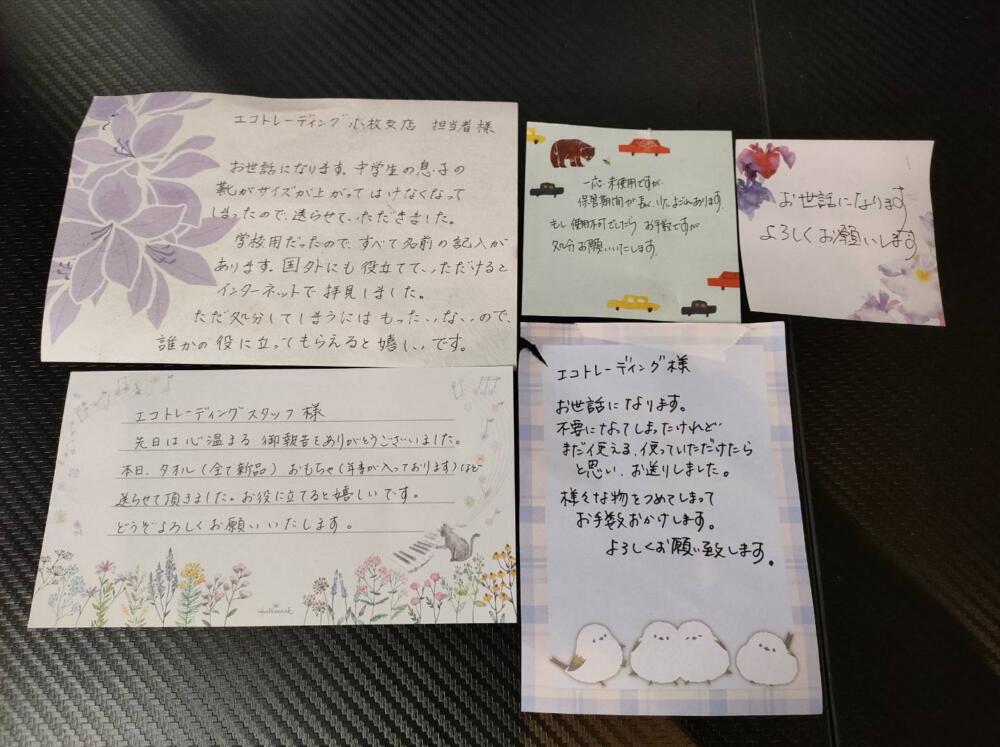 エコトレーディング小牧支店 担当者様
お世話になります。中学生の息子の
靴がサイズが上がってはけなくなって
しまったので、送らせていただきました。
学校用だったので、すべて名前の記入が
あります。国外にも役立てていただけると
インターネットで拝見しました。
ただ処分してしまうにはもったいないので、
誰かの役に立ってもらえると嬉しいです。
一応、未使用ですが、
保管期間が長く、いたみあります。
もし使用不可でしたら お手数ですが
処分お願いいたします。
お世話になります
よろしくお願いします
エコトレーディングスタッフ様
先日は心温まる御報告をありがとうございました。
本日、タオル(全て新品) おもちゃ(年季が入っております)ほど
送らせて頂きました。お役に立てると嬉しいです。
どうぞよろしくお願いいたします。
Hallmark
エコトレーディング様
お世話になります。
不要になってしまったけれど
まだ使える、使っていただけたら
と思い、お送りしました。
様々な物をつめてしまって
お手数おかけします。
よろしくお願い致します。